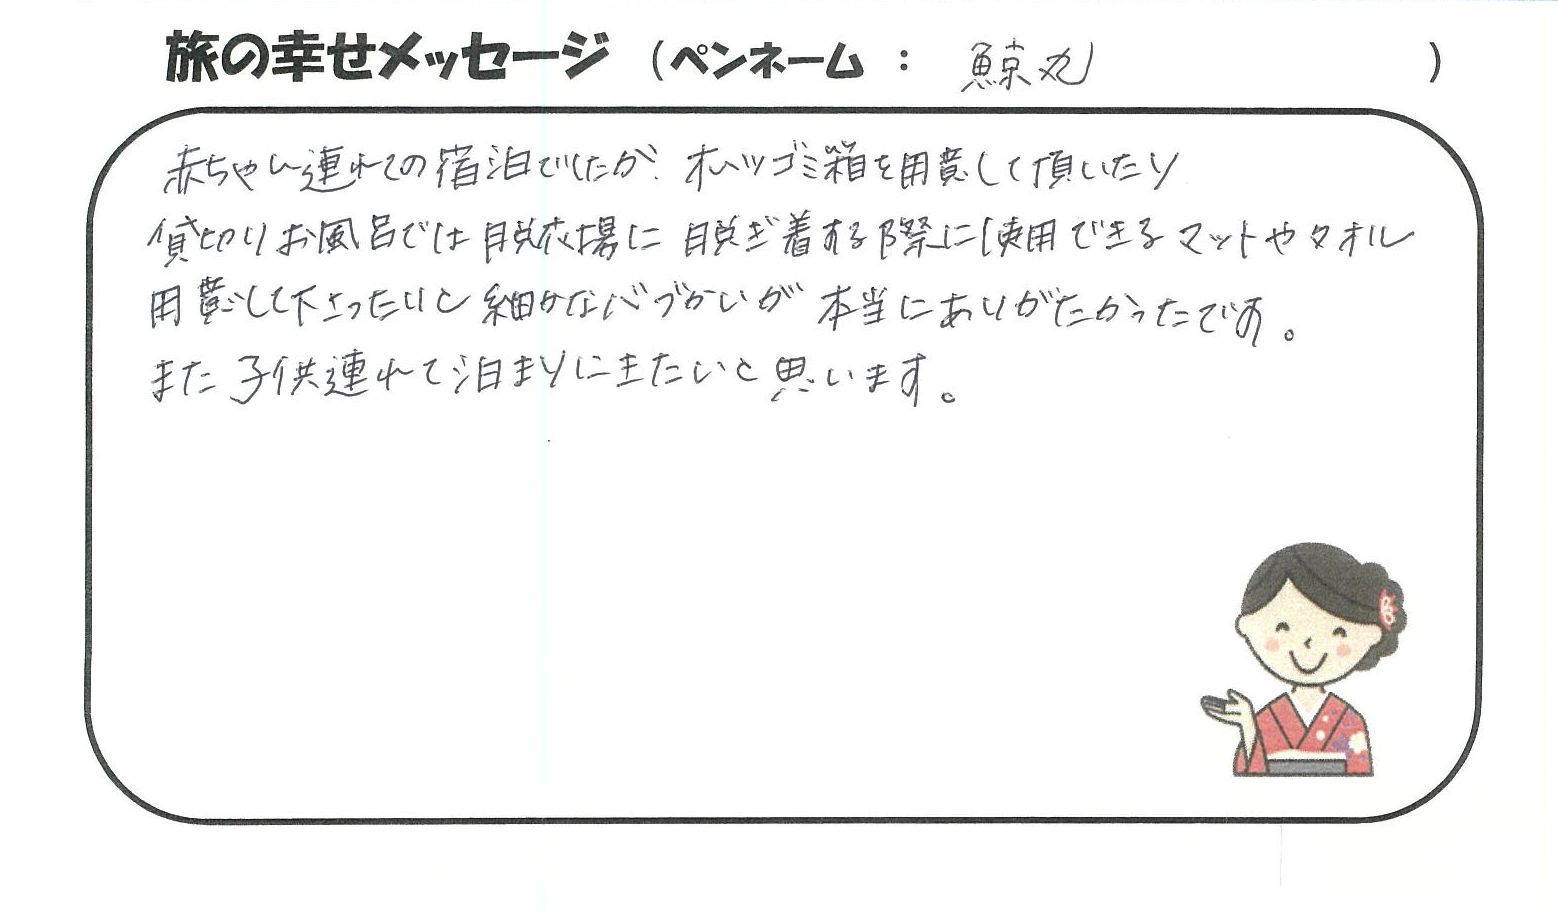 旅の幸せメッセージ （ペンネーム ： 鯨丸 ）
赤ちゃん連れての宿泊でしたが、オムツゴミ箱を用意して頂いたり
貸切りお風呂では脱衣場に脱ぎ着する際に使用できるマットやタオル
用意して下さったりと細かな心づかいが本当にありがたかったです。
また子供連れて泊まりにきたいと思います。